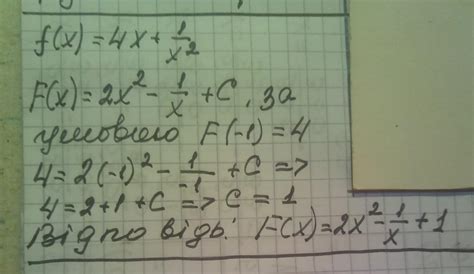 f(x) = 4x + 1/x²
F(x) = 2x² - 1/x + C, за
умовою F(-1) = 4
4 = 2(-1)² - 1/-1 + C =>
4 = 2 + 1 + C => C = 1
Відповідь: F(x) = 2x² - 1/x + 1